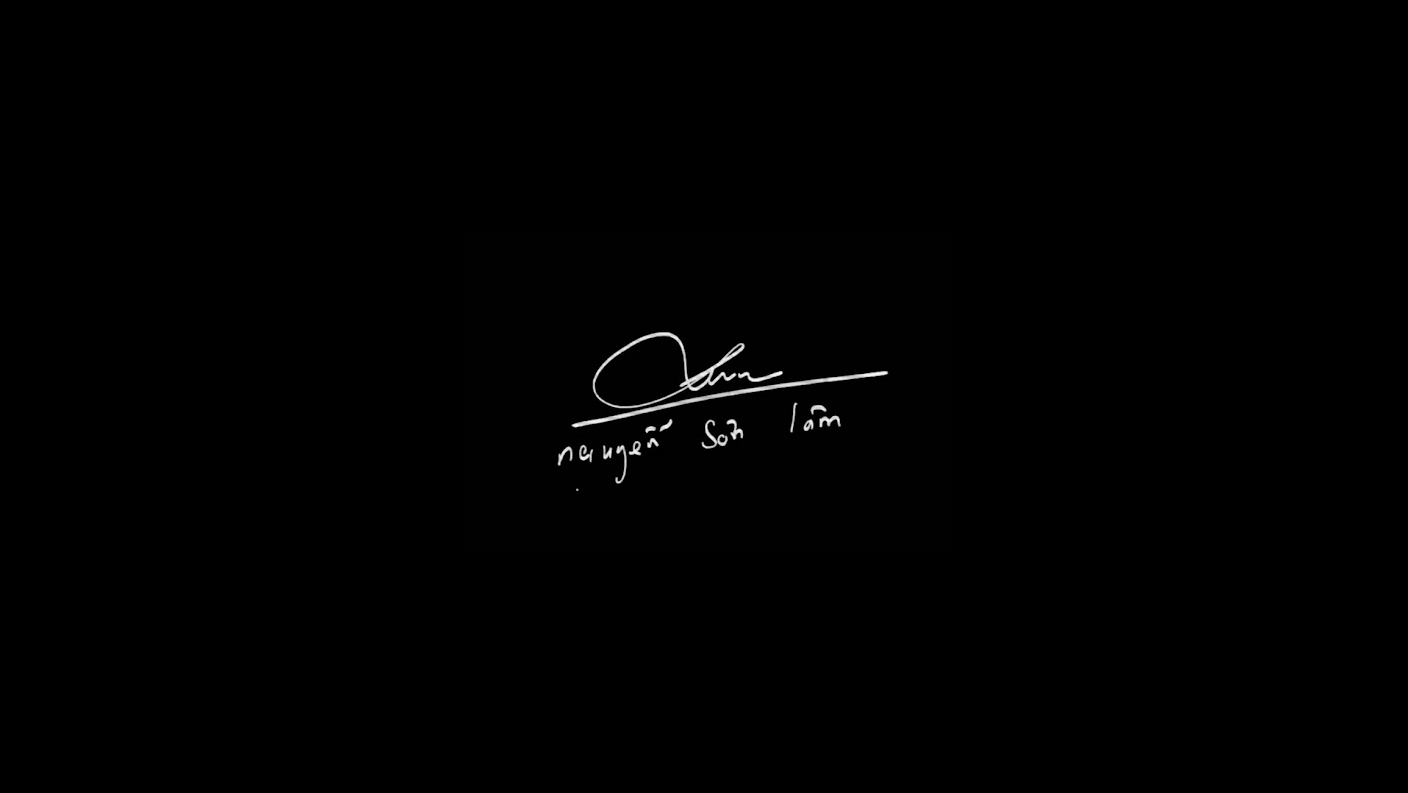 nguyễn Sơn lâm